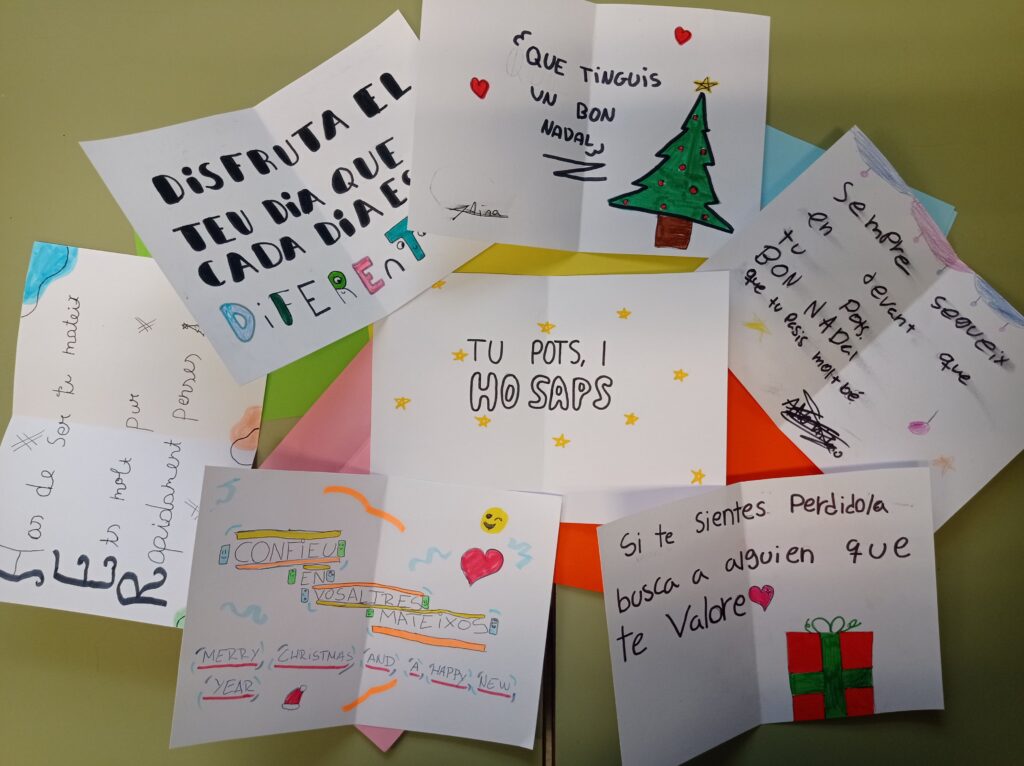 QUE TINGUIS
UN BON
NADAL
Aina
DISFRUTA EL
TEU DIA QUE
CADA DIA ES
DIFERENT
Sempre segueix
en devant que
tu pots.
BON NADAL
que tu pasis molt bé.
Has de Ser tu mateix
Ets molt pur
penses
TU POTS, I
HO SAPS
CONFIEU
EN
VOSALTRES
MATEIXOS
MERRY CHRISTMAS AND A HAPPY NEW
YEAR
Si te sientes Perdido/a
busca a alguien que
te Valore